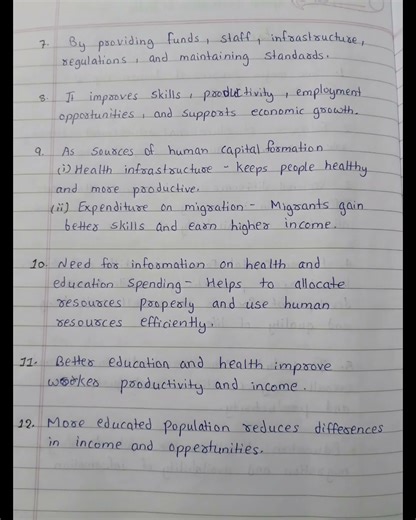 7. By providing funds, staff, infrastructure,
regulations, and maintaining standards.
8. It improves skills, productivity, employment
opportunities, and supports economic growth.
9. As sources of human capital formation
(i) Health infrastructure - keeps people healthy
and more productive.
(ii) Expenditure on migration - Migrants gain
better skills and earn higher income.
10. Need for information on health and
education spending - Helps to allocate
resources properly and use human
resources efficiently.
11. Better education and health improve
worker productivity and income.
12. More educated population reduces differences
in income and oppertunities.